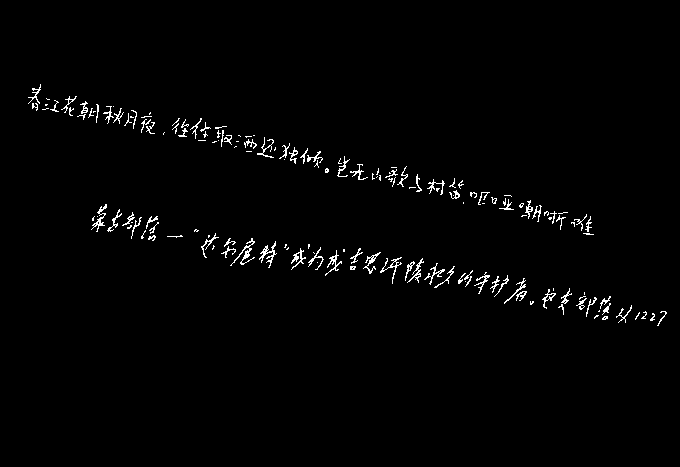 春江花朝秋月夜，往往取酒还独倾。岂无山歌与村笛，呕哑嘲哳难
蒙古部落一“达尔扈特”成为成吉思汗陵永久的守护者。这支部落从1227